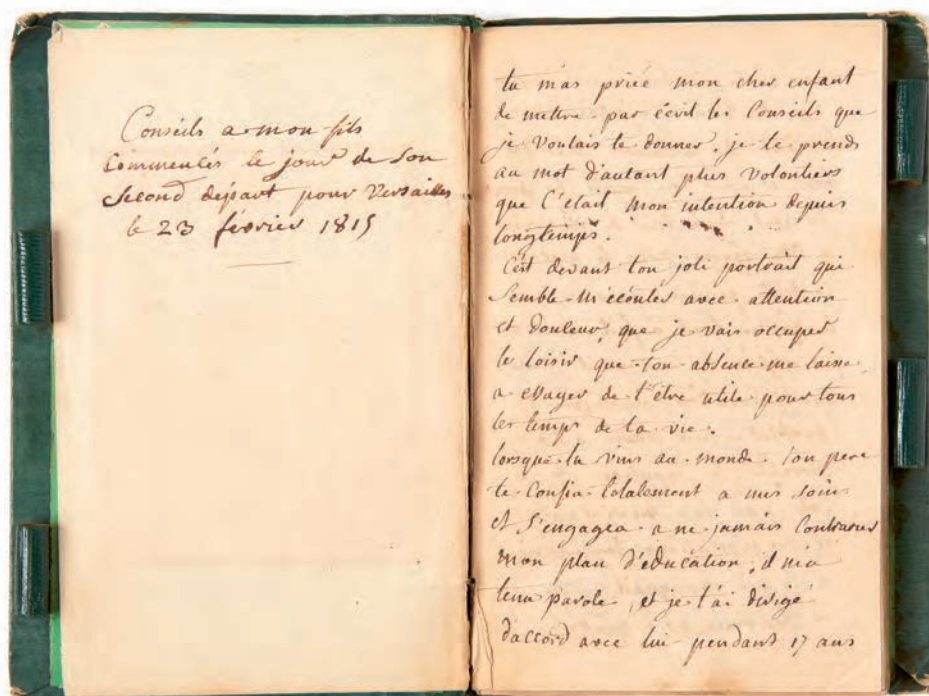 Conseils a mon fils
Commencés le jour de Son
Second départ pour Versailles
le 23 février 1815
tu m'as priée mon cher enfant
de mettre par écrit les Conseils que
je voulais te donner, je te prends
au mot d'autant plus volontiers
que C'était mon intention depuis
longtemps.
C'est devant ton joli portrait qui
Semble m'écouter avec attention
et douleur, que je vais occuper
le loisir que ton absence me laisse
a essayer de t'être utile pour tous
les temps de ta vie.
lorsque tu vins au monde ton pere
te Confia totalement a mes soins
et S'engagea a ne jamais Contrarier
mon plan d'éducation, il m'a
tenu parole, et je t'ai dirigé
d'accord avec lui pendant 17 ans